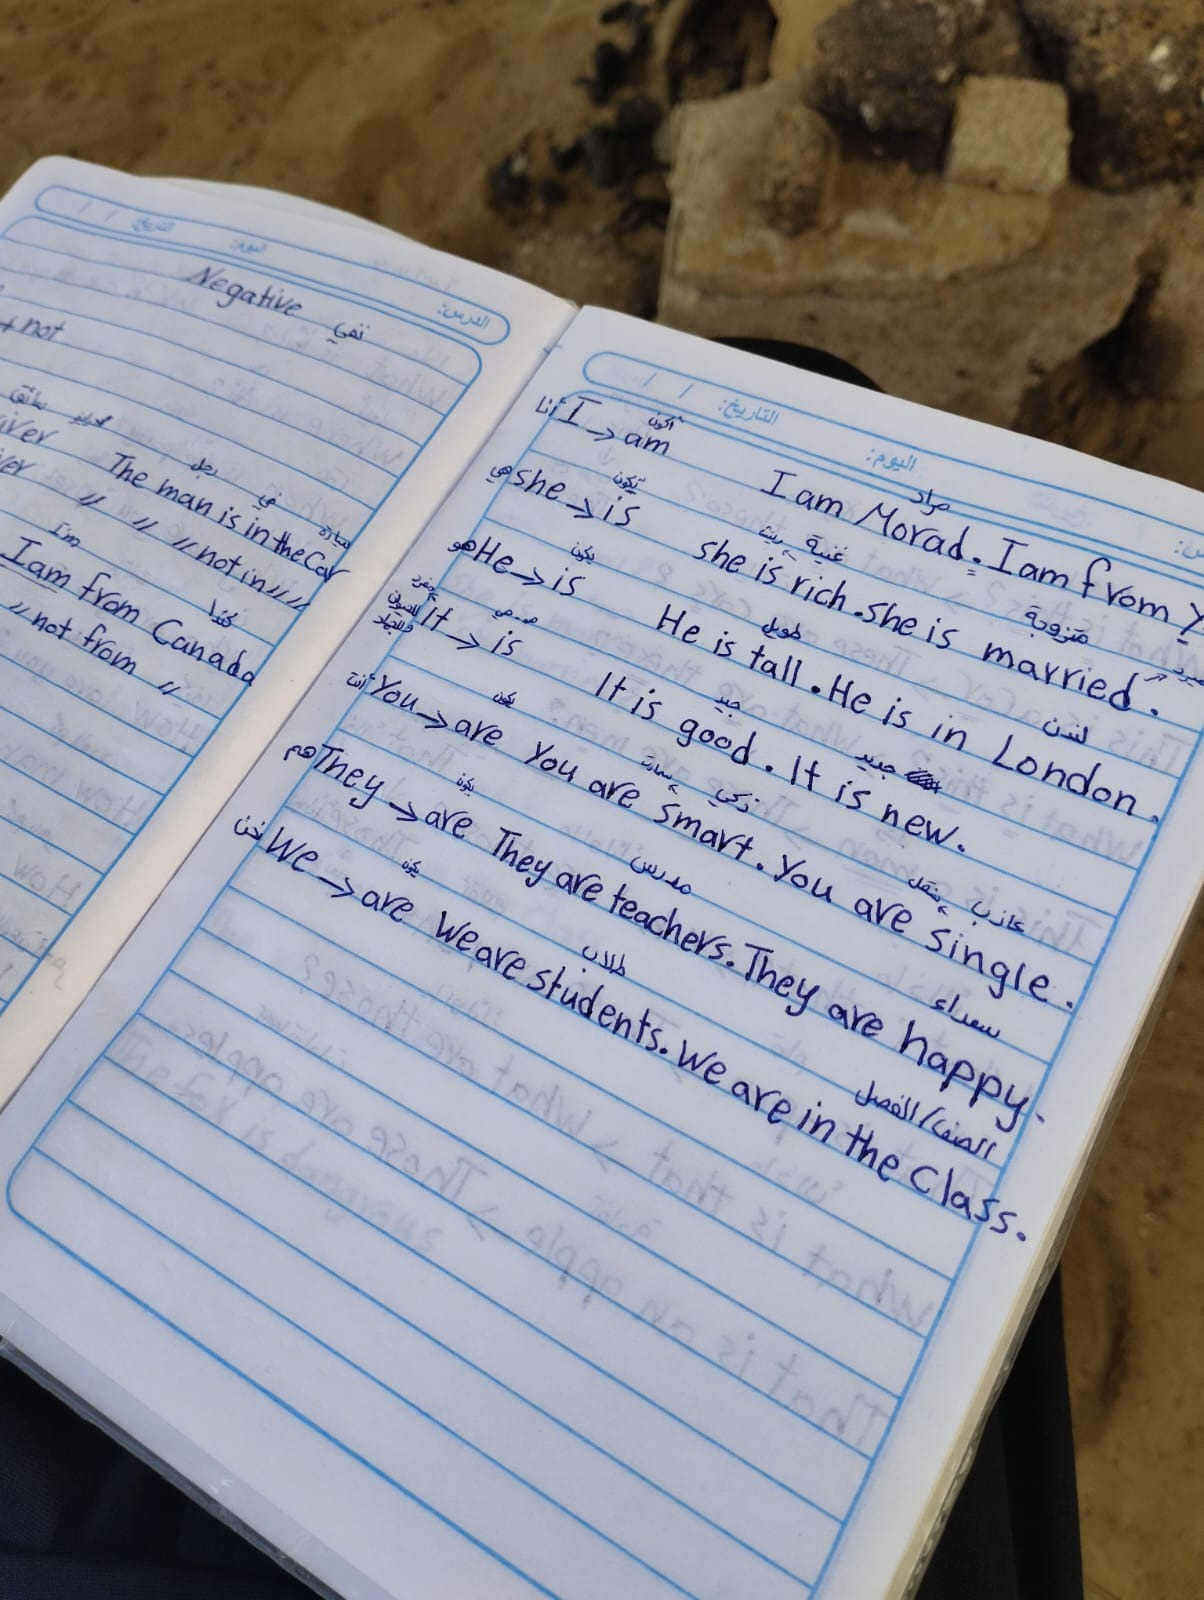 الدرس: اليوم: التاريخ: / /
Negative نفي
+ not
سائق
The man is in the Car
رجل في سيارة
〃 〃 〃 not in 〃 〃
I'm كندا
I am from Canada
〃 not from 〃
التاريخ: / /
اليوم:
أنا I → am أكون
مراد
I am Morad. I am from
هي she → is تكون
غنية ريتش متزوجة
she is rich. she is married.
هو He → is يكون
طويل لندن
He is tall. He is in London.
It → is
جيد جديد
It is good. It is new.
أنت You → are يكون
سمارت ذكي سنقل عازب
You are smart. You are single.
هم They → are يكون
مدرس سعداء
They are teachers. They are happy.
نحن We → are يكون
طلاب الصف/الفصل
We are students. We are in the Class.